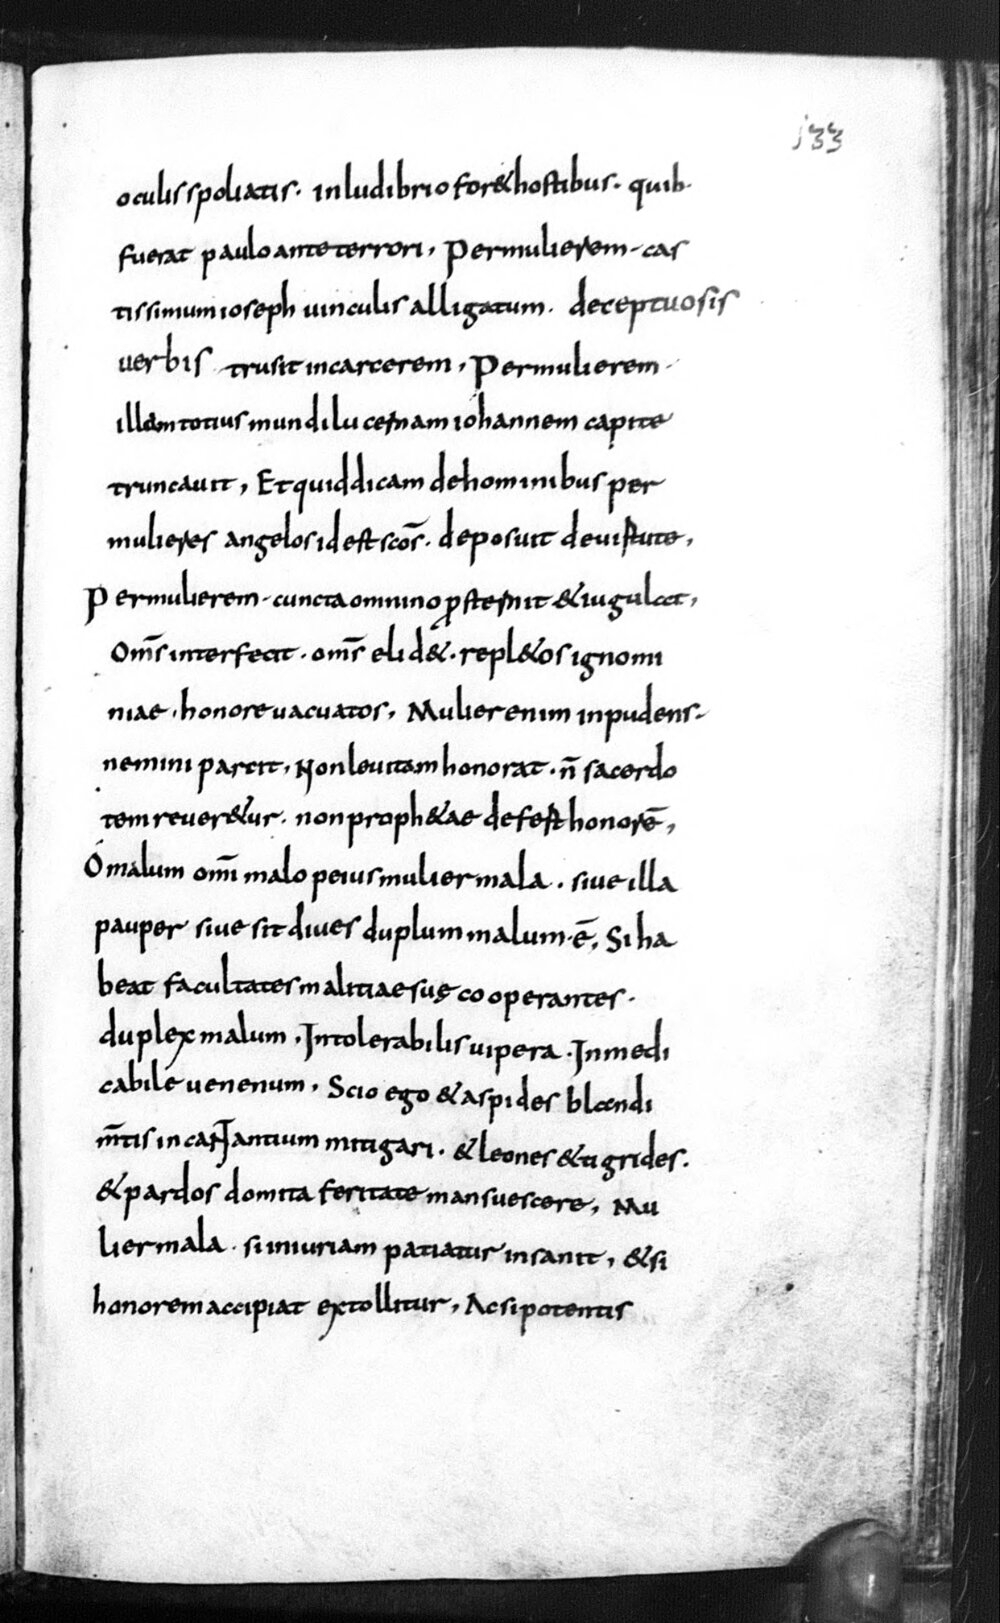 133
oculis spoliatis. inludibrio for&hostibus. quib.
fuerat paulo ante terrori, Permulierem. cas
tissimum ioseph uinculis alligatum. deceptuosis
uerbis trusit incarcerem, Permulierem.
illam totius mundi lucernam iohannem capite
truncauit, Et quid dicam de hominibus per
mulieres angelos id est scōs. deposuit de uirtute,
Permulierem. cuncta omnino ꝓsternit & iugulat,
Om̄s interfecit. om̄s elid&. repl&os ignomi
niae. honore uacuatos, Mulier enim inpudens.
nemini parcit, Non leuitam honorat. n̄ sacerdo
tem reuer&ur. non proph&ae defert honorē,
O malum om̄i malo peius mulier mala. siue illa
pauper siue sit diues duplum malum.ē, Si ha
beat facultates malitiae suę cooperantes.
duplex malum, Intolerabilis uipera. Inmedi
cabile uenenum, Scio ego & aspides blandi
m̄tis incantantium mitigari. & leones & tigrides.
& pardos domita feritate mansuescere, Mu
lier mala. si iniuriam patiatur insanit, & si
honorem accipiat extollitur, Ac si potentis